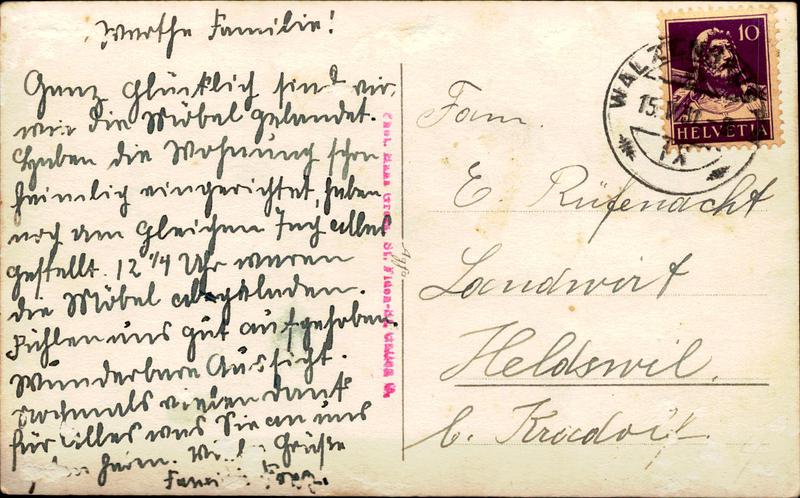 Werthe Familie!
Ganz Glücklich sind wir,
wie die Möbel gelandet.
Haben die Wohnung schon
heimlig eingerichtet, haben
noch am gleichen Tag alles
gestellt. 12 1/4 Uhr waren
die Möbel abgeladen.
Fühlen uns gut aufgehoben.
Wunderbare Aussicht.
Nochmals vielen Dank
für alles was Sie an uns
Grüße
Phot. Hans Gross, St. Fiden-St. Gallen O.
10
HELVETIA
15.
Fam.
E. Rüfenacht
Landwirt
Heldswil.
b. Kradolf.